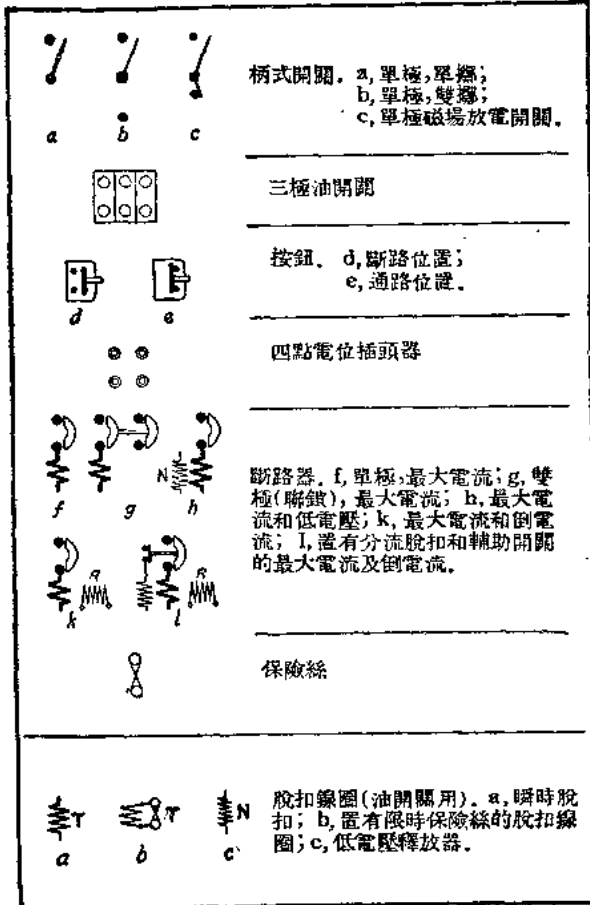 a b c
柄式開關. a, 單極,單擲;
b, 單極,雙擲;
c, 單極磁場放電開關.
三極油開關
d e
按鈕. d, 斷路位置;
e, 通路位置.
四點電位插頭器
N
f g h
R R
k l
斷路器. f, 單極,最大電流; g, 雙
極(聯鎖), 最大電流; h, 最大電
流和低電壓; k, 最大電流和倒電
流; l, 置有分流脫扣和輔助開關
的最大電流及倒電流.
保險絲
T T N
a b c
脫扣線圈(油開關用). a, 瞬時脫
扣; b, 置有限時保險絲的脫扣線
圈; c, 低電壓釋放器.